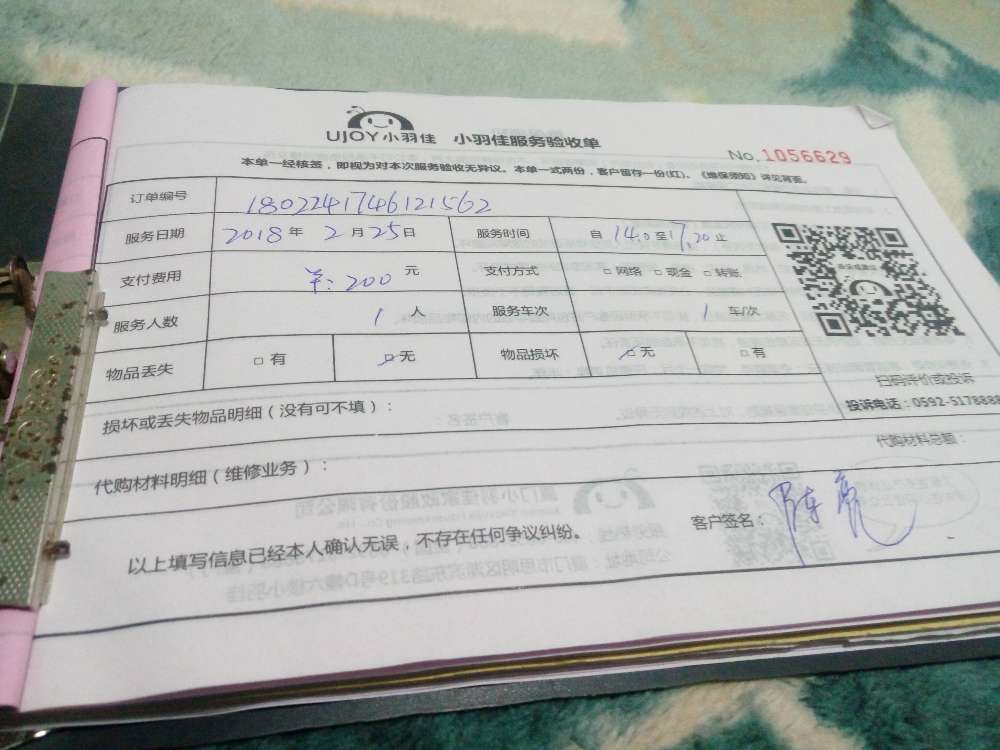 UJOY小羽佳 小羽佳服务验收单
No.1056629
本单一经核签，即视为对本次服务验收无异议。本单一式两份，客户留存一份(红)。《维保须知》详见背面。
订单编号 1802241746121562
服务日期 2018年2月25日 服务时间 自14.0至17.20止
支付费用 ￥:200元 支付方式 □网络 □现金 □转账
服务人数 1人 服务车次 1车/次
物品丢失 □有 ☑无 物品损坏 ☑无 □有
扫码评价或投诉
损坏或丢失物品明细（没有可不填）：
投诉电话：0592-5178888
代购材料明细（维修业务）：
代购材料总额：
以上填写信息已经本人确认无误，不存在任何争议纠纷。
客户签名：陈亮